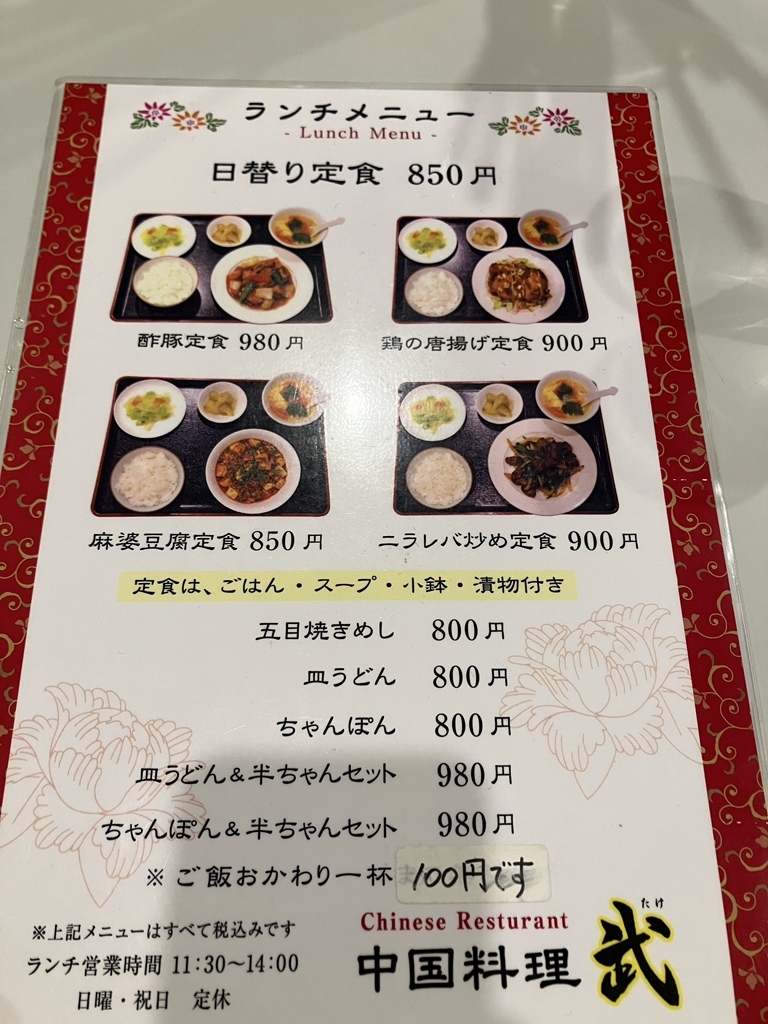 ランチメニュー
- Lunch Menu -
日替り定食 850円
酢豚定食 980円
鶏の唐揚げ定食 900円
麻婆豆腐定食 850円
ニラレバ炒め定食 900円
定食は、ごはん・スープ・小鉢・漬物付き
五目焼きめし 800円
皿うどん 800円
ちゃんぽん 800円
皿うどん&半ちゃんセット 980円
ちゃんぽん&半ちゃんセット 980円
※ご飯おかわり一杯 100円です
※上記メニューはすべて税込みです
ランチ営業時間 11:30～14:00
日曜・祝日 定休
Chinese Resturant
たけ
中国料理 武